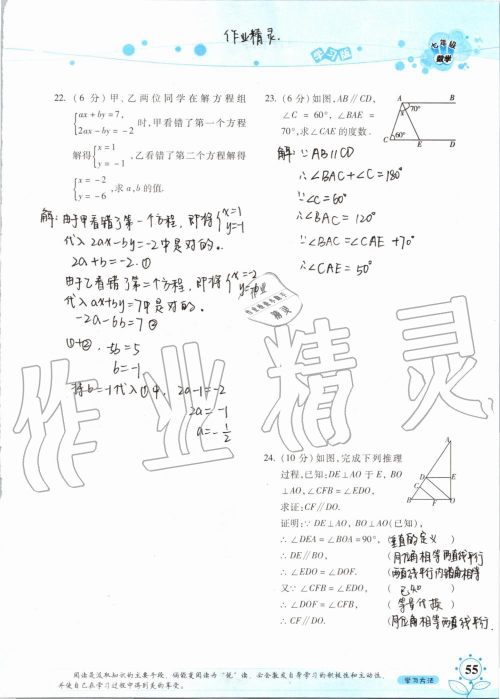 作业精灵.
学习版
七年级
数学
22. (6 分) 甲、乙两位同学在解方程组
{ax+by=7,
2ax-by=-2 时,甲看错了第一个方程
解得{x=1
y=-1 ,乙看错了第二个方程解得
{x=-2
y=-6 ,求 a,b 的值.
解:由于甲看错了第一个方程,即将{x=1
y=-1
代入2ax-by=-2中是对的。
2a+b=-2.①
由于乙看错了第二个方程,即将{x=-2
代入ax+by=7中是对的。
-2a-6b=7②
①+②. -5b=5
b=-1
将b=-1代入①中, 2a-1=-2
2a=-1
a=-1/2
23. (6 分) 如图, AB∥CD,
∠C = 60°, ∠BAE =
70°,求∠CAE 的度数.
A B
70°
C 60° E D
解: ∵AB∥CD
∴∠BAC+∠C=180°
∵∠C=60°
∴∠BAC=120°
∵∠BAC=∠CAE+70°
∴∠CAE=50°
作业精灵
24. (10 分) 如图,完成下列推理
过程,已知:DE⊥AO 于 E, BO
⊥AO,∠CFB=∠EDO,
求证:CF∥DO.
A
D E
C
B F O
证明:∵DE⊥AO, BO⊥AO(已知),
∴∠DEA=∠BOA=90°, (垂直的定义)
∴DE∥BO, (同位角相等两直线平行)
∴∠EDO=∠DOF. (两直线平行内错角相等)
又∵∠CFB=∠EDO, (已知)
∴∠DOF=∠CFB, (等量代换)
∴CF∥DO. (同位角相等两直线平行)
阅读是汲取知识的主要手段。倘能变阅读为“悦”读,必会激发自身学习的积极性和主动性,
并使自己在学习过程中得到美的享受。
学习方法
55